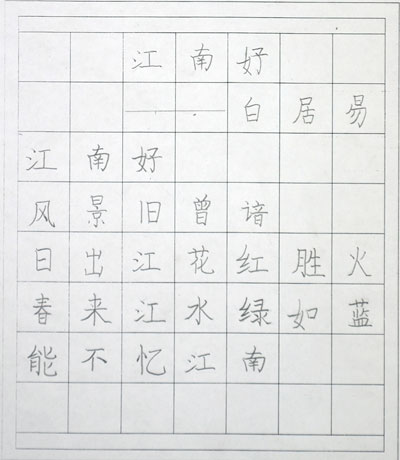 江南好
——白居易
江南好
风景旧曾谙
日出江花红胜火
春来江水绿如蓝
能不忆江南